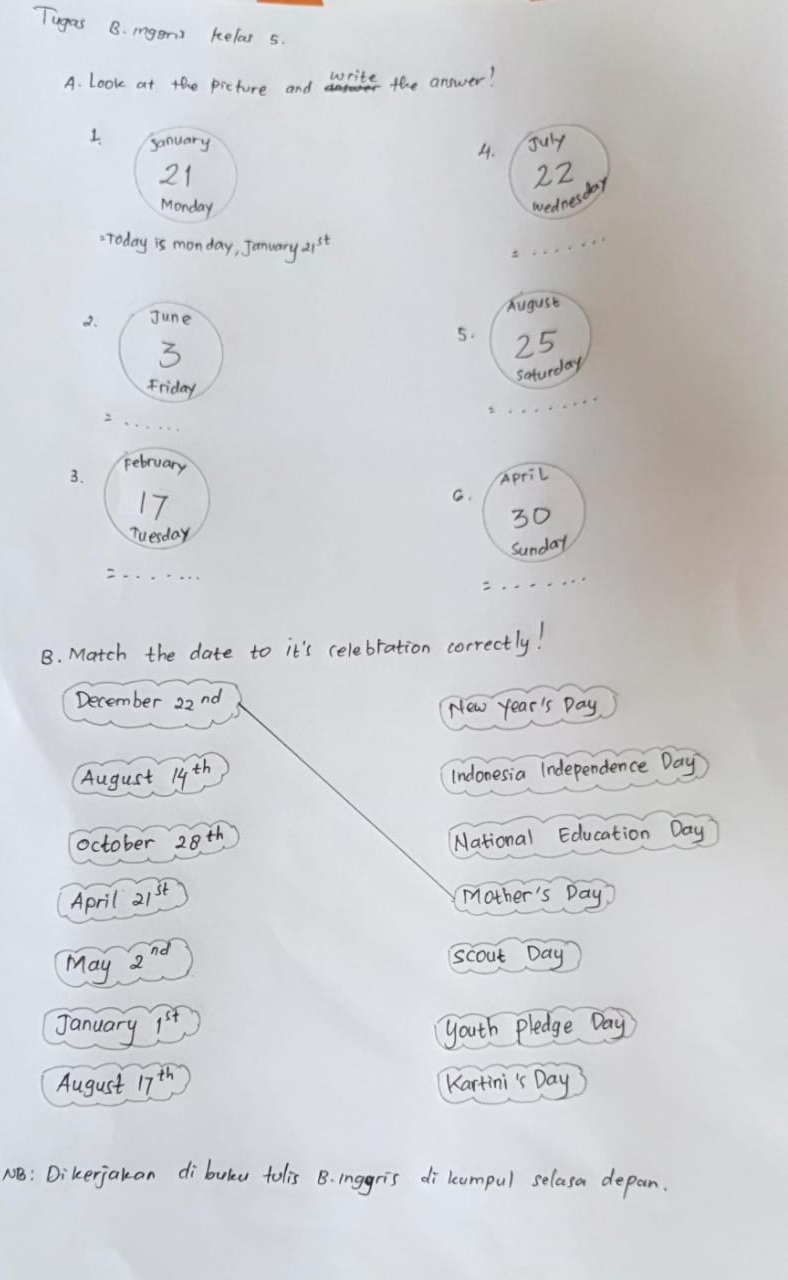 Tugas B. Inggris kelas 5.
A. Look at the picture and write the answer!
1. January
21
Monday
=Today is monday, January 21st
2. June
3
Friday
= ......
3. February
17
Tuesday
= .......
4. July
22
Wednesday
= .......
5. August
25
Saturday
= .........
6. April
30
Sunday
= ........
B. Match the date to it's celebration correctly!
December 22nd
New Year's Day
August 14th
Indonesia Independence Day
October 28th
National Education Day
April 21st
Mother's Day
May 2nd
Scout Day
January 1st
Youth pledge Day
August 17th
Kartini's Day
NB: Dikerjakan di buku tulis B. Inggris di kumpul selasa depan.